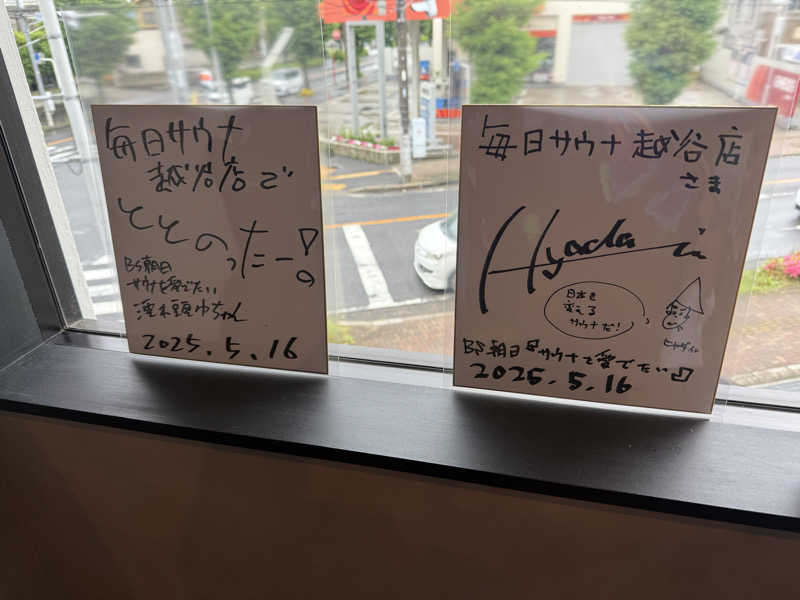 毎日サウナ
越谷店で
ととのったー!
BS朝日
サウナを愛でたい
清水みさとゃん
2025.5.16
毎日サウナ 越谷店
さま
Hyadain
日本を
変える
サウナだ!
ヒャダイン
BS朝日 サウナを愛でたい
2025.5.16